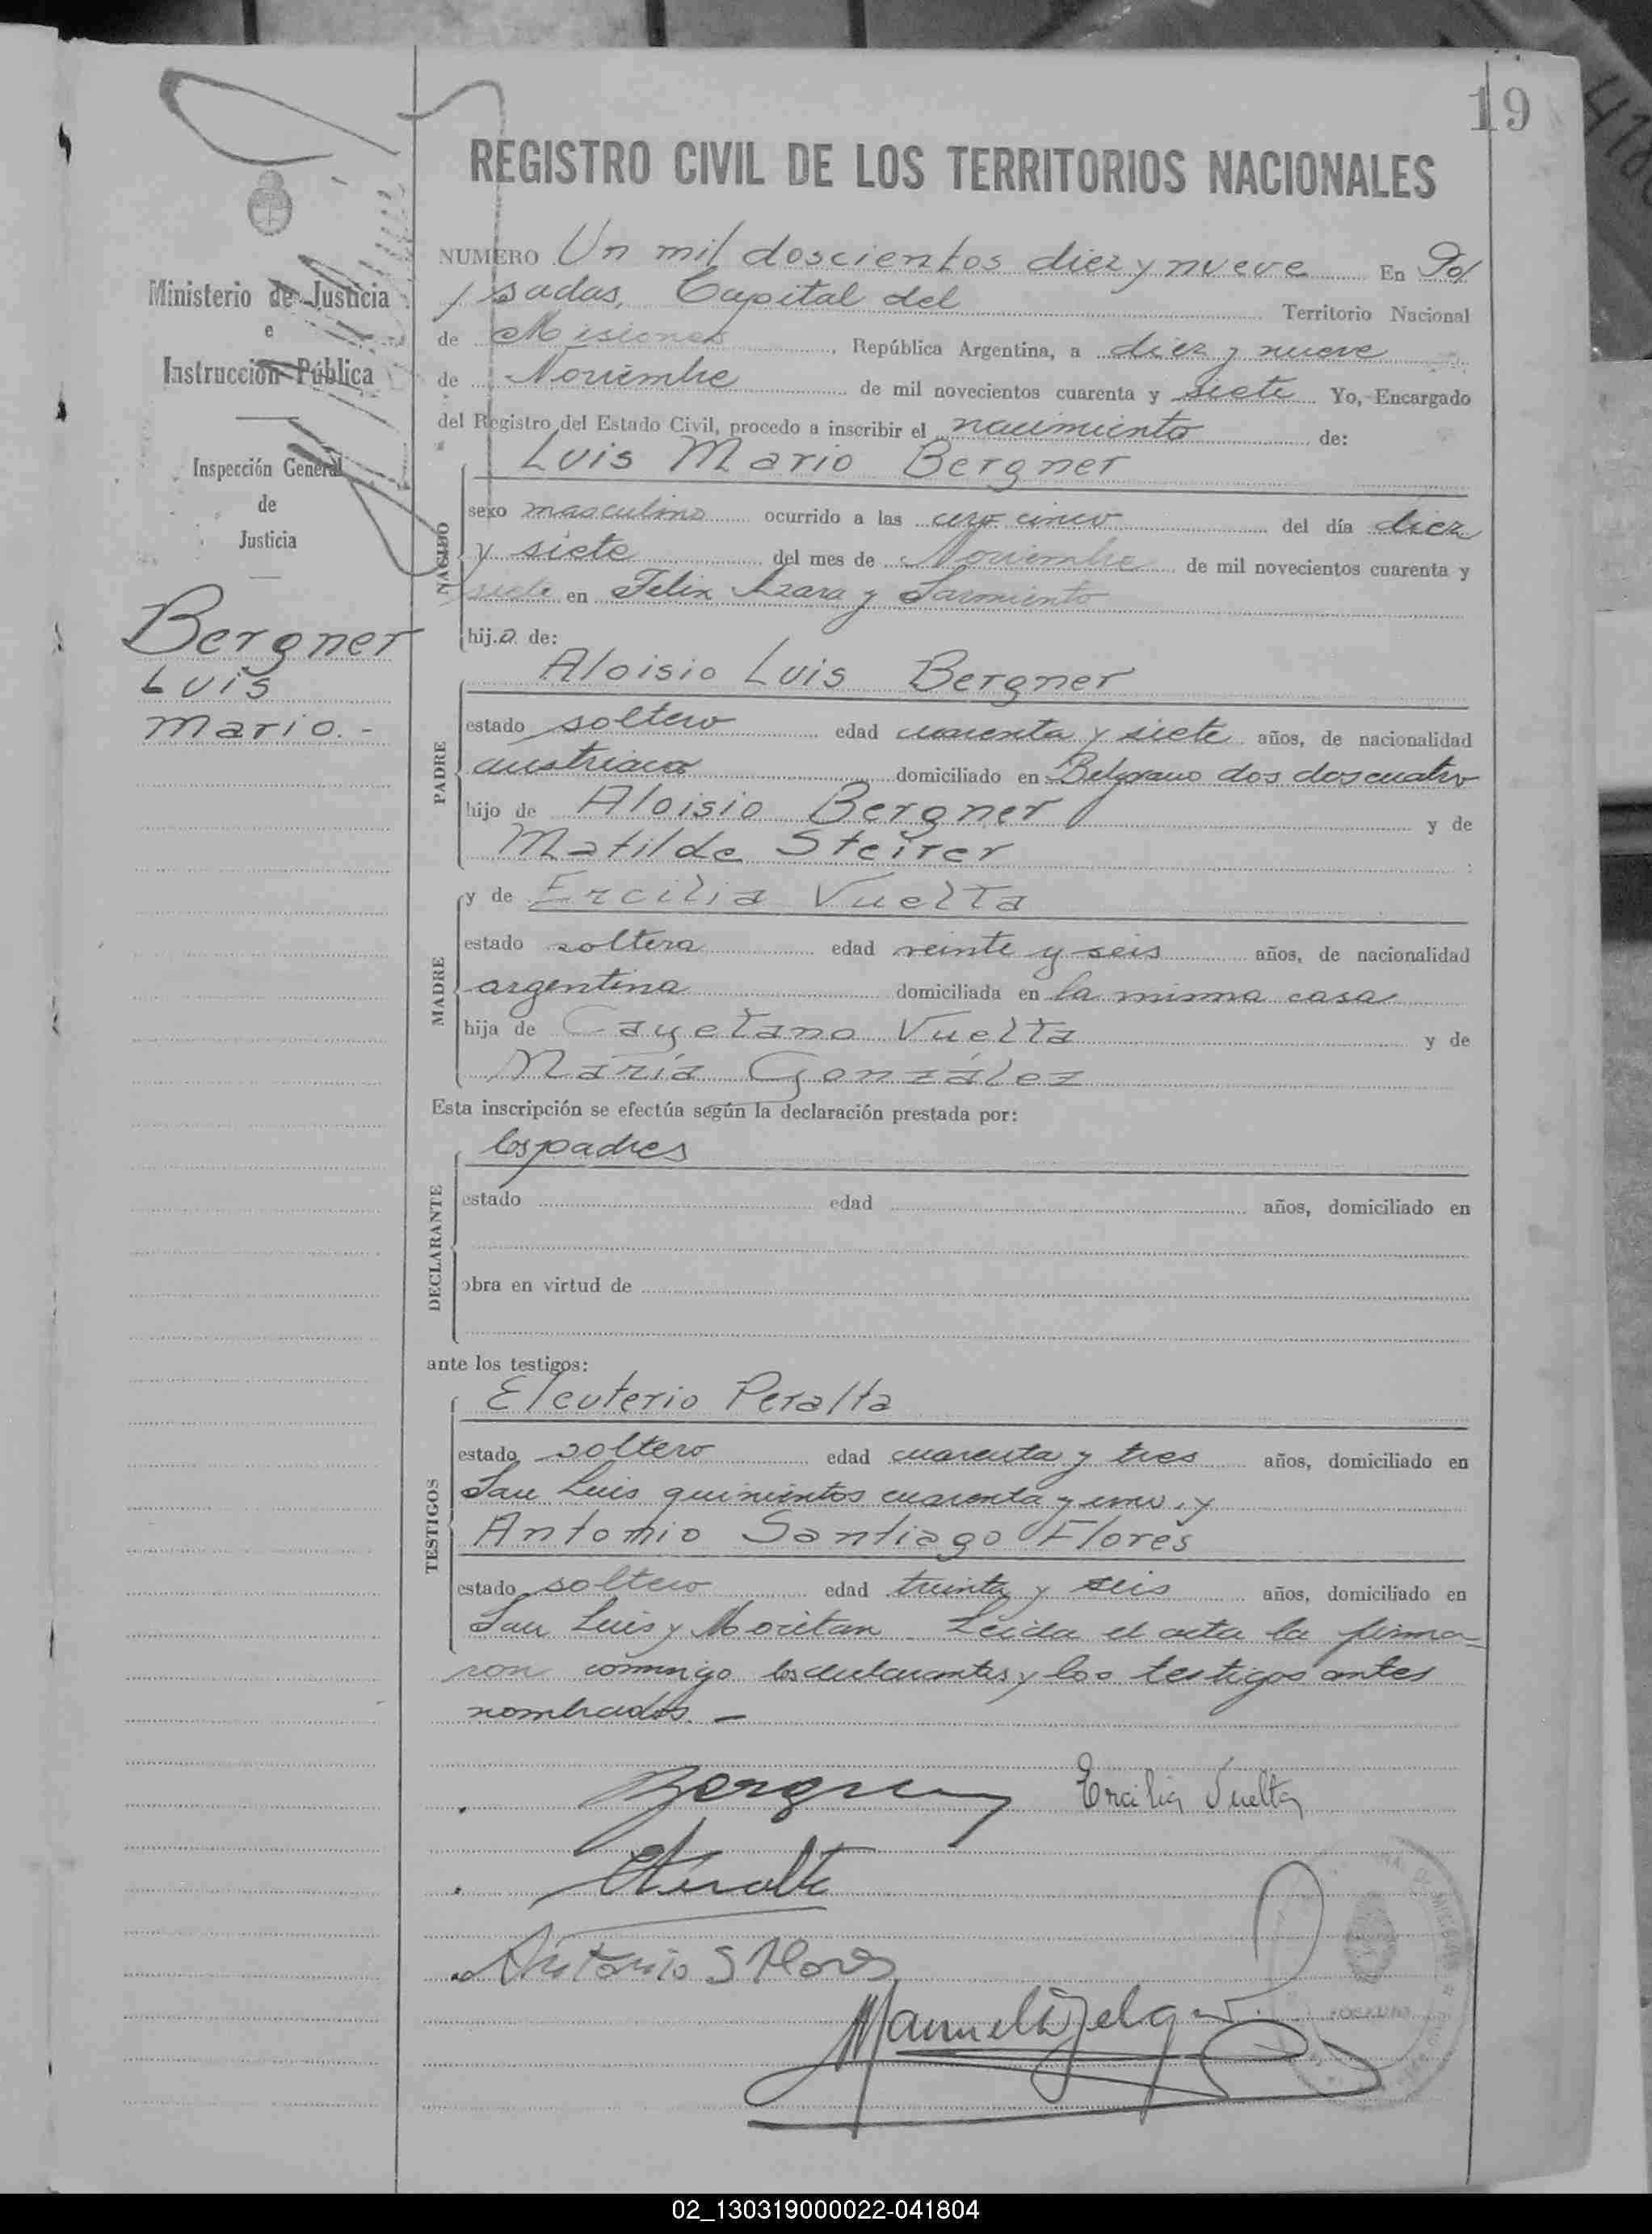 19
REGISTRO CIVIL DE LOS TERRITORIOS NACIONALES
Ministerio de Justicia
e
Instrucción Pública
Inspección General
de
Justicia
Bergner
Luis
Mario.-
NUMERO Un mil doscientos diez y nueve En Po/
/sadas, Capital del Territorio Nacional
de Misiones, República Argentina, a diez y nueve
de Noviembre de mil novecientos cuarenta y siete Yo, Encargado
del Registro del Estado Civil, procedo a inscribir el nacimiento de:
Luis Mario Bergner
NACIDO
sexo masculino ocurrido a las cero cinco del día diez
y siete del mes de Noviembre de mil novecientos cuarenta y
siete en Felix Azara y Sarmiento
hijo de:
Aloisio Luis Bergner
PADRE
estado soltero edad cuarenta y siete años, de nacionalidad
austriaca domiciliado en Belgrano dos dos cuatro
hijo de Aloisio Bergner y de
Matilde Steirer
MADRE
y de Ercilia Vuelta
estado soltera edad veinte y seis años, de nacionalidad
argentina domiciliada en la misma casa
hija de Cayetano Vuelta y de
María González
Esta inscripción se efectúa según la declaración prestada por:
los padres
DECLARANTE
estado edad años, domiciliado en
obra en virtud de
ante los testigos:
Eleuterio Peralta
TESTIGOS
estado soltero edad cuarenta y tres años, domiciliado en
San Luis quinientos cuarenta y uno, y
Antonio Santiago Flores
estado soltero edad treinta y seis años, domiciliado en
San Luis y Moritan Leida el acta la firma-
ron conmigo los declarantes y los testigos antes
nombrados.-
Bergner Ercilia Vuelta
EPeralta
Antonio S Flores
02_130319000022-041804